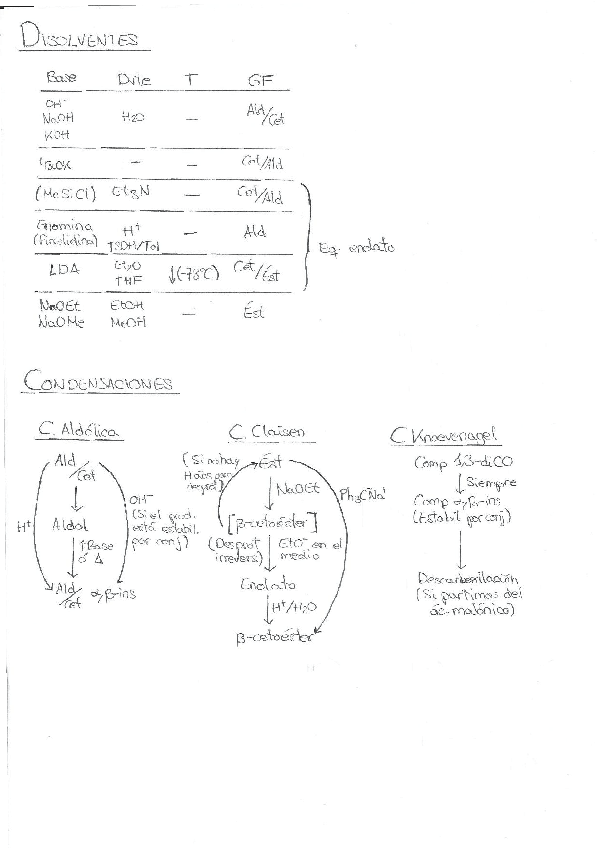 DISOLVENTES
Base Dvte T GF
OH⁻
NaOH H₂O — Ald/Cet
KOH
ᵗBuOK — — Cet/Ald
(Me₃SiCl) Et₃N — Cet/Ald
Enamina H⁺ — Ald
(Pirrolidina) TSOH/Tol
Eq. enolato
LDA Et₂O ↓(-78ºC) Cet/Est
THF
NaOEt EtOH — Est
NaOMe MeOH
CONDENSACIONES
C. Aldólica
Ald/Cet
H⁺
Aldol
↑Base
ó Δ
Ald/Cet α,β-ins
OH⁻
(Si el prod.
está estabil.
por conj)
C. Claisen
(Si no hay
H ácidos para
Est
NaOEt
Ph₃C⁻Na⁺
[β-cetoéster]
(Desprot
irrevers)
EtO⁻ en el
medio
Enolato
H⁺/H₂O
β-cetoéster
C. Knoevenagel
Comp 1,3-diCO
Siempre
Comp α,β-ins
(Estabil por conj)
Descarboxilación
(Si partimos del
ác. malónico)